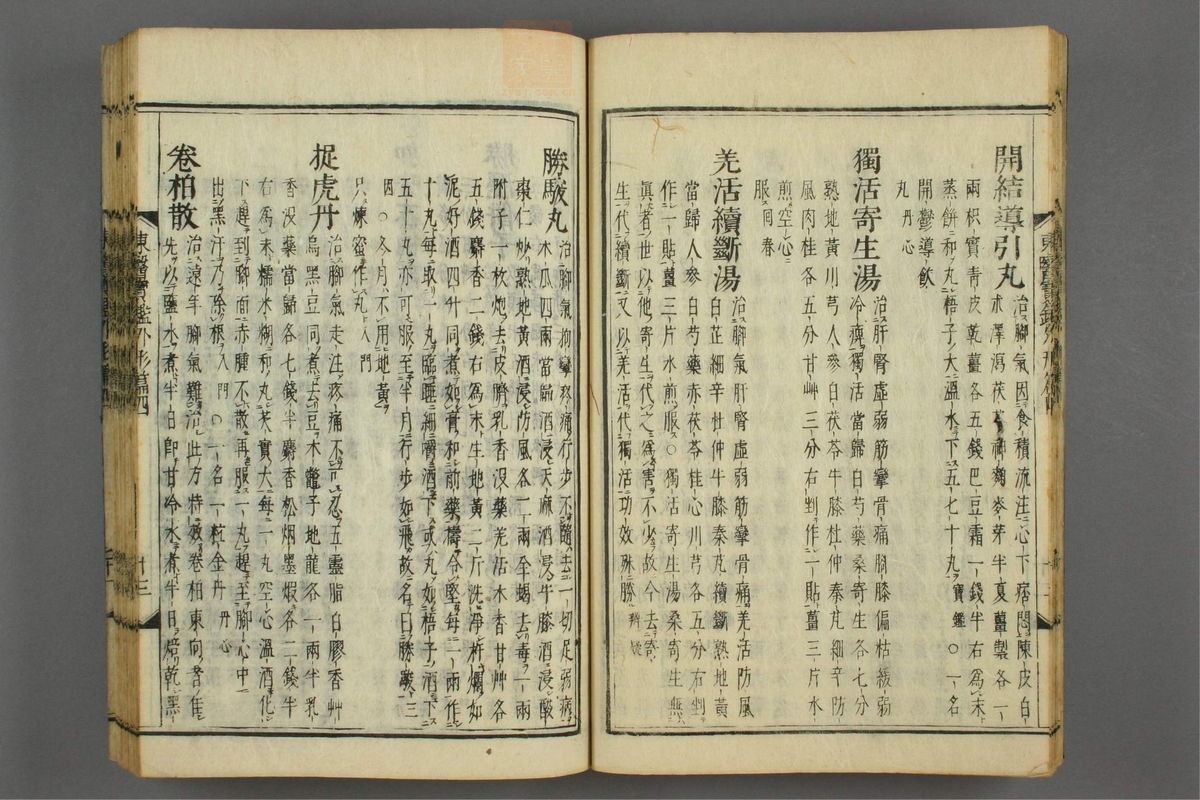 開結導引丸 治脚氣因食積流注心下痞悶陳皮白
朮澤瀉茯神麴麥芽半夏薑製各一
兩枳實青皮乾薑各五錢巴豆霜一錢半右為末
蒸餠和丸梧子大溫水下五七十丸寶鑑○一名
開鬱導飮
丸丹心
獨活寄生湯 治肝腎虛弱筋攣骨痛脚膝偏枯緩弱
冷痺獨活當歸白芍藥桑寄生各七分
熟地黃川芎人參白茯苓牛膝杜仲秦艽細辛防
風肉桂各五分甘艸三分右剉作一貼薑三片水
煎空心
服回春
羌活續斷湯 治脚氣肝腎虛弱筋攣骨痛羌活防風
白芷細辛杜仲牛膝秦艽續斷熟地黃
當歸人參白芍藥赤茯苓桂心川芎各五分右剉
作一貼薑三片水煎服○獨活寄生湯桑寄生無
眞者世以他寄生代之為害不少故今去寄
生代續斷又以羌活代獨活功效殊勝辨疑
勝駿丸 治脚氣拘攣疼痛行步不隨去一切足弱病
木瓜四兩當歸酒浸天麻酒浸牛膝酒浸酸
棗仁炒熟地黃酒浸防風各二兩全蝎去毒一兩
附子一枚炮去皮臍乳香沒藥羌活木香甘艸各
五錢麝香二錢右為末生地黃二斤洗淨斫爛如
泥好酒四升同煮如膏和前藥擣令堅每一兩作
十丸每取一丸臨睡細嚼酒下或丸如梧子酒下
五十丸亦可服至半月行步如飛故名曰勝駿三
因○冬月不用地黃
只煉蜜作丸入門
捉虎丹 治脚氣走注疼痛不可忍五靈脂白膠香艸
烏黑豆同煮去豆木鼈子地龍各一兩半乳
香沒藥當歸各七錢半麝香松烟墨煆各二錢半
右為末糯米糊和丸芡實大每一丸空心溫酒化
下趕到脚面赤腫不散再服一丸趕至脚心中
出黑汗乃除根入門○一名一粒金丹丹心
卷柏散 治遠年脚氣難治此方特效卷柏東向者
先以鹽水煮半日卽甘冷水煮半日焙乾黑
東醫寶鑑外形篇四